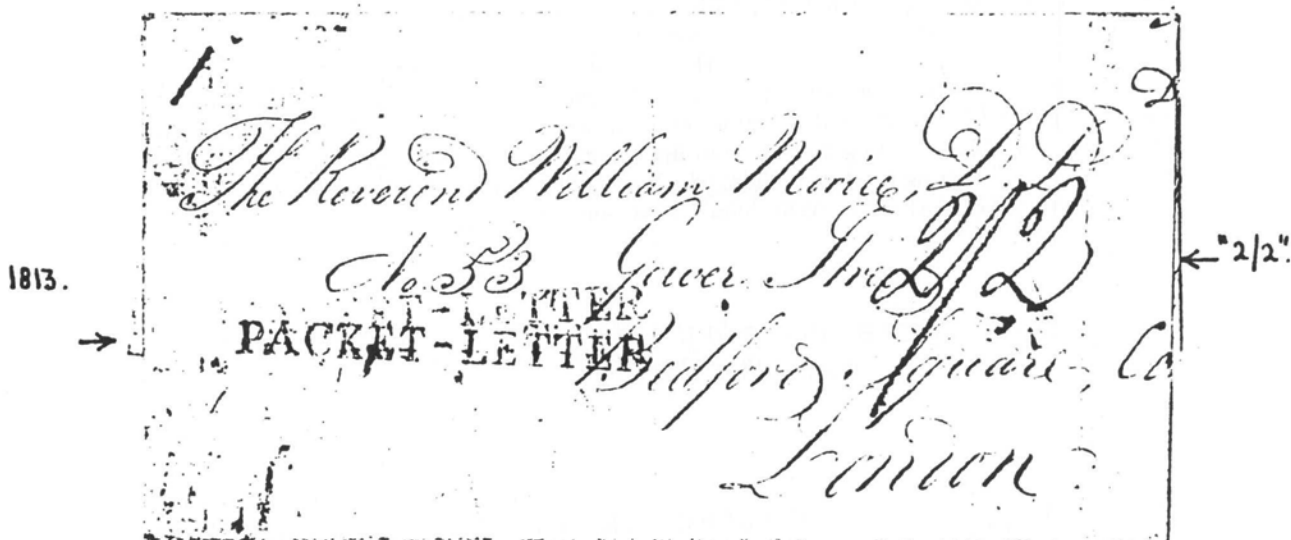 The Reverend William Morice, D.D.
No. 53 Gower Stre
2/2
1813.
"2/2".
T-LETTER
PACKET-LETTER
Bedford Square, Co
London